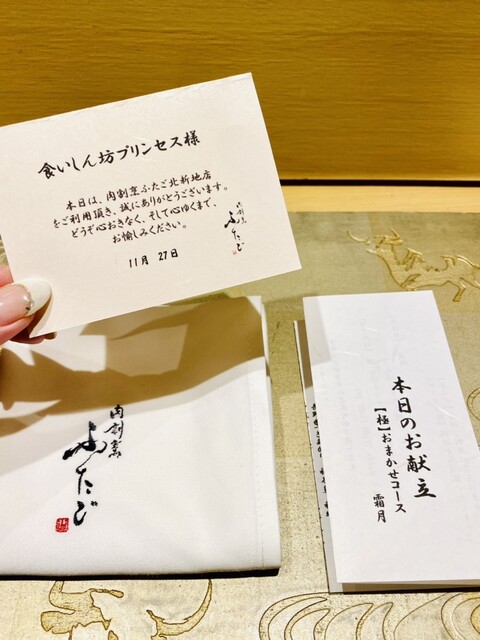 食いしん坊プリンセス様
本日は、肉割烹ふたご北新地店
をご利用頂き、誠にありがとうございます。
どうぞ心おきなく、そして心ゆくまで、
お愉しみください。
11月 27日
肉割烹
ふたご
肉割烹
ふたご
本日のお献立
【極】おまかせコース
霜月